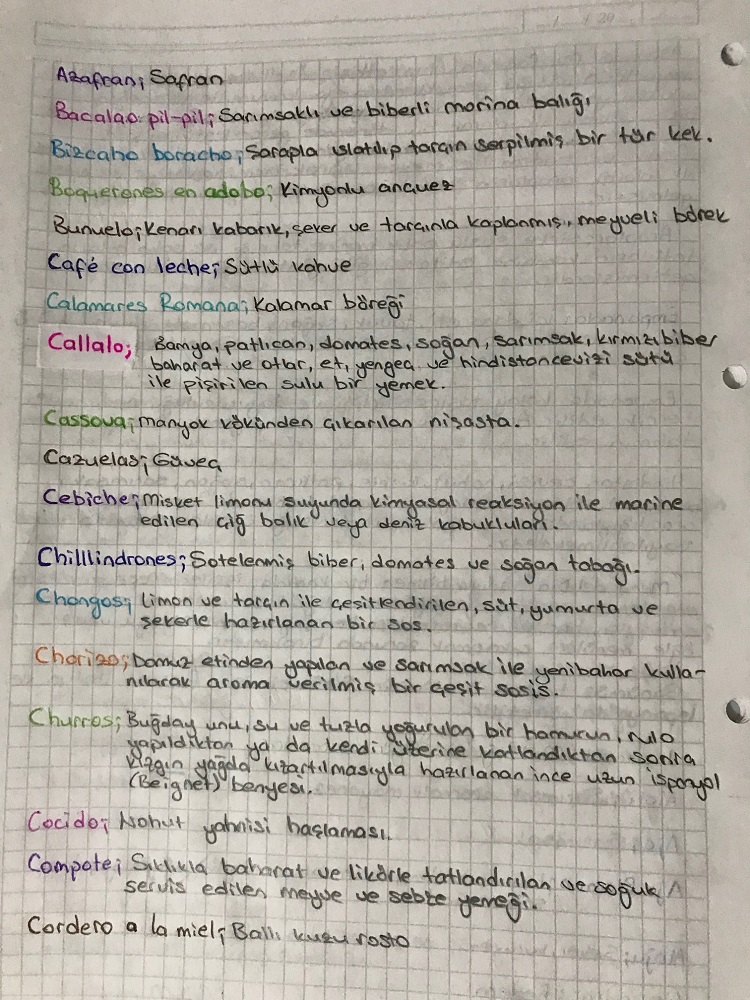 Azafran; Safran
Bacalao pil-pil; Sarımsaklı ve biberli morina balığı
Bizcaho boracho; Şarapla ıslatılıp tarçın serpilmiş bir tür kek.
Boquerones en adobo; Kimyonlu ançuez
Bunuelo; Kenarı kabarık, şeker ve tarçınla kaplanmış, meyveli börek
Café con leche; Sütlü kahve
Calamares Romana; Kalamar böreği
Callalo; Bamya, patlıcan, domates, soğan, sarımsak, kırmızı biber
baharat ve otlar, et, yengeç ve hindistancevizi sütü
ile pişirilen sulu bir yemek.
Cassova; manyok kökünden çıkarılan nişasta.
Cazuelas; Güveç
Cebiche; Misket limonu suyunda kimyasal reaksiyon ile marine
edilen çiğ balık veya deniz kabukluları.
Chilllindrones; Sotelenmiş biber, domates ve soğan tabağı.
Chongos; Limon ve tarçın ile çeşitlendirilen, süt, yumurta ve
şekerle hazırlanan bir sos.
Chorizo; Domuz etinden yapılan ve sarımsak ile yenibahar kulla-
nılarak aroma verilmiş bir çeşit sosis.
Churros; Buğday unu, su ve tuzla yoğurulan bir hamurun, rulo
yapıldıktan ya da kendi üzerine katlandıktan sonra
kızgın yağda kızartılmasıyla hazırlanan ince uzun ispanyol
(Beignet) benyesi.
Cocido; Nohut yahnisi haşlaması.
Compote; Sıklıkla baharat ve likörle tatlandırılan ve soğuk
servis edilen meyve ve sebze yemeği.
Cordero a la miel; Ballı kuzu rosto